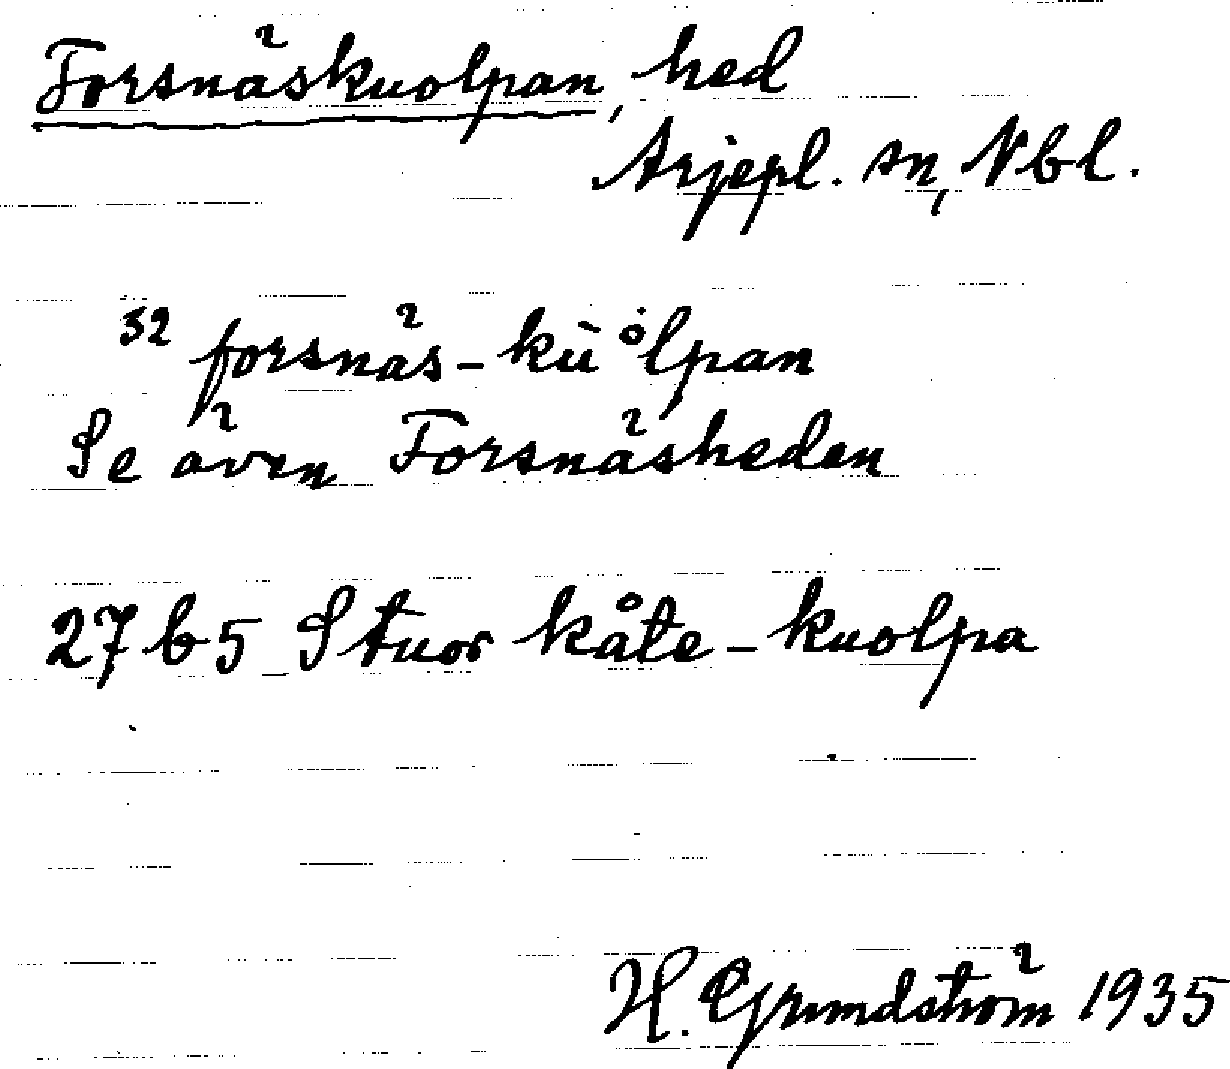 Forsnäskuolpan, hed
Arjepl. sn, Nbl.
32 forsnäs-kùålpan
Se även Forsnäsheden
27b5 Stuor kåte-kuolpa
H. Grundström 1935